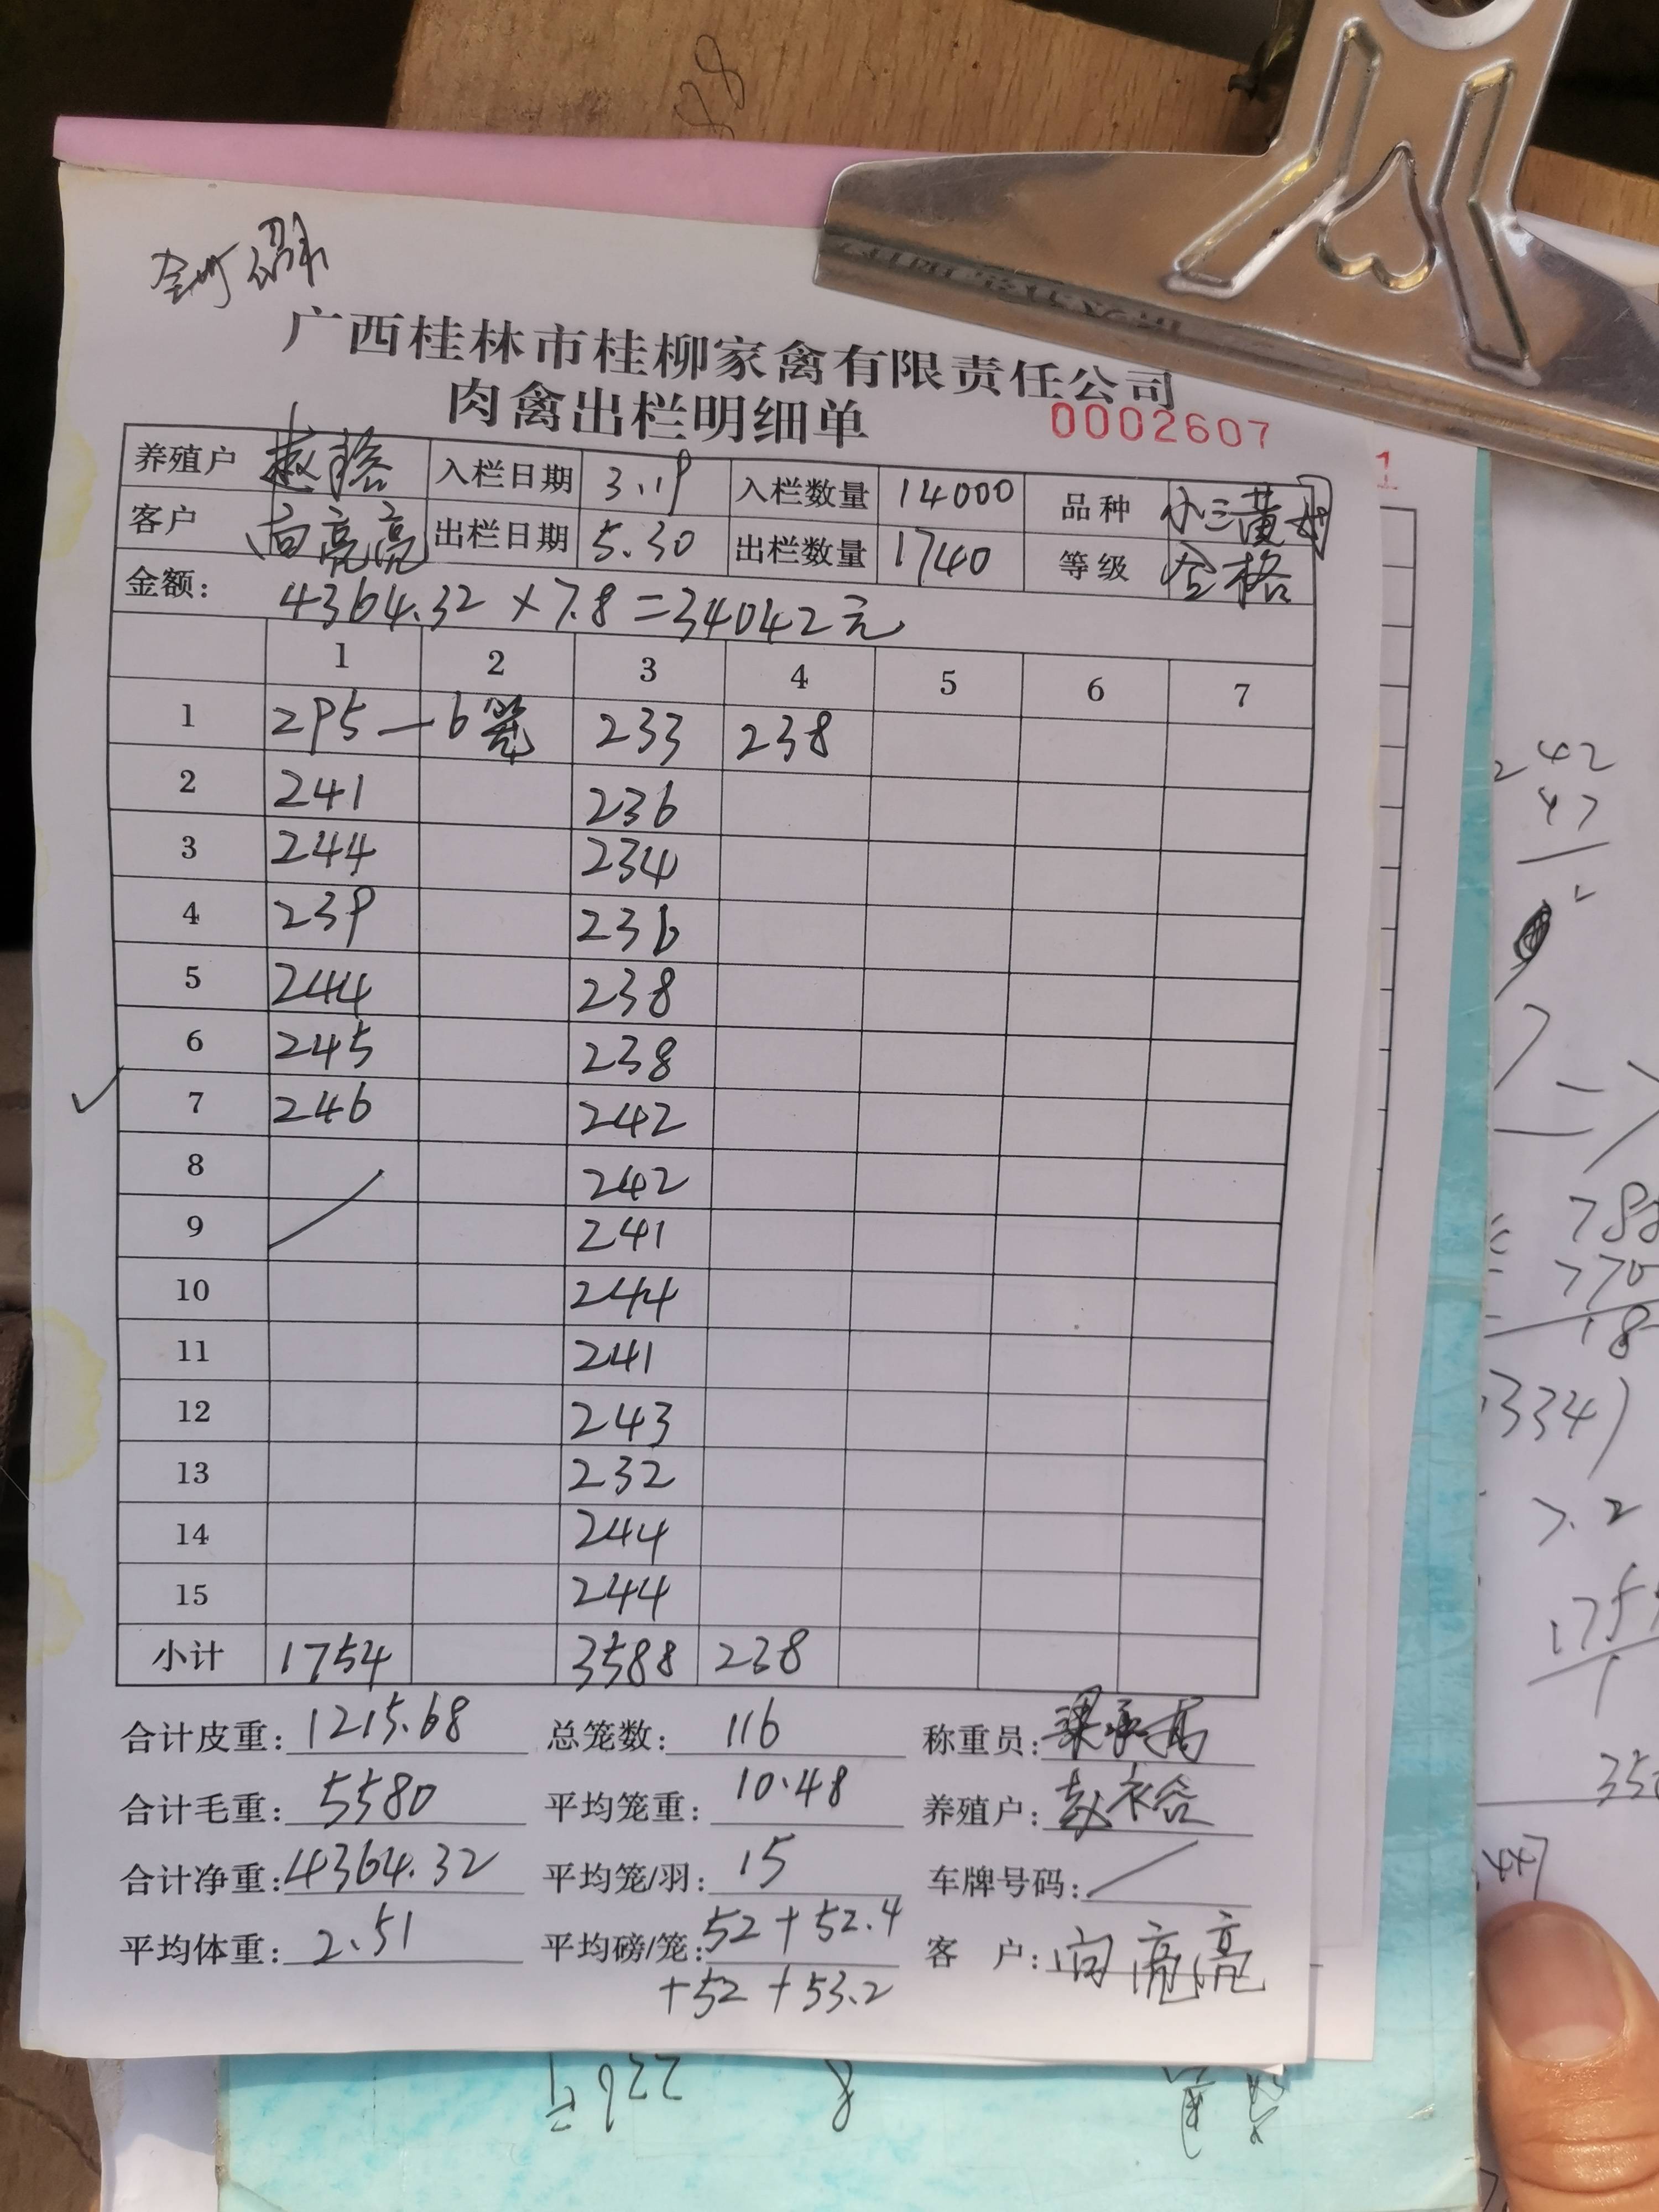 广西桂林市桂柳家禽有限责任公司
肉禽出栏明细单 0002607
养殖户 赵裕 入栏日期 3.19 入栏数量 14000 品种 小三黄
客户 向亮亮 出栏日期 5.30 出栏数量 1740 等级 合格
金额: 4364.32 × 7.8 = 34042元
1 2 3 4 5 6 7
1 295 — 6笼 233 238
2 241 236
3 244 234
4 239 236
5 244 238
6 245 238
7 246 242
8 242
9 241
10 244
11 241
12 243
13 232
14 244
15 244
小计 1754 3588 238
合计皮重: 1215.68 总笼数: 116 称重员:
合计毛重: 5580 平均笼重: 10.48 养殖户: 赵裕
合计净重: 4364.32 平均笼/羽: 15 车牌号码: /
平均体重: 2.51 平均磅/笼: 52 + 52.4 客 户: 向亮亮
+ 52 + 53.2